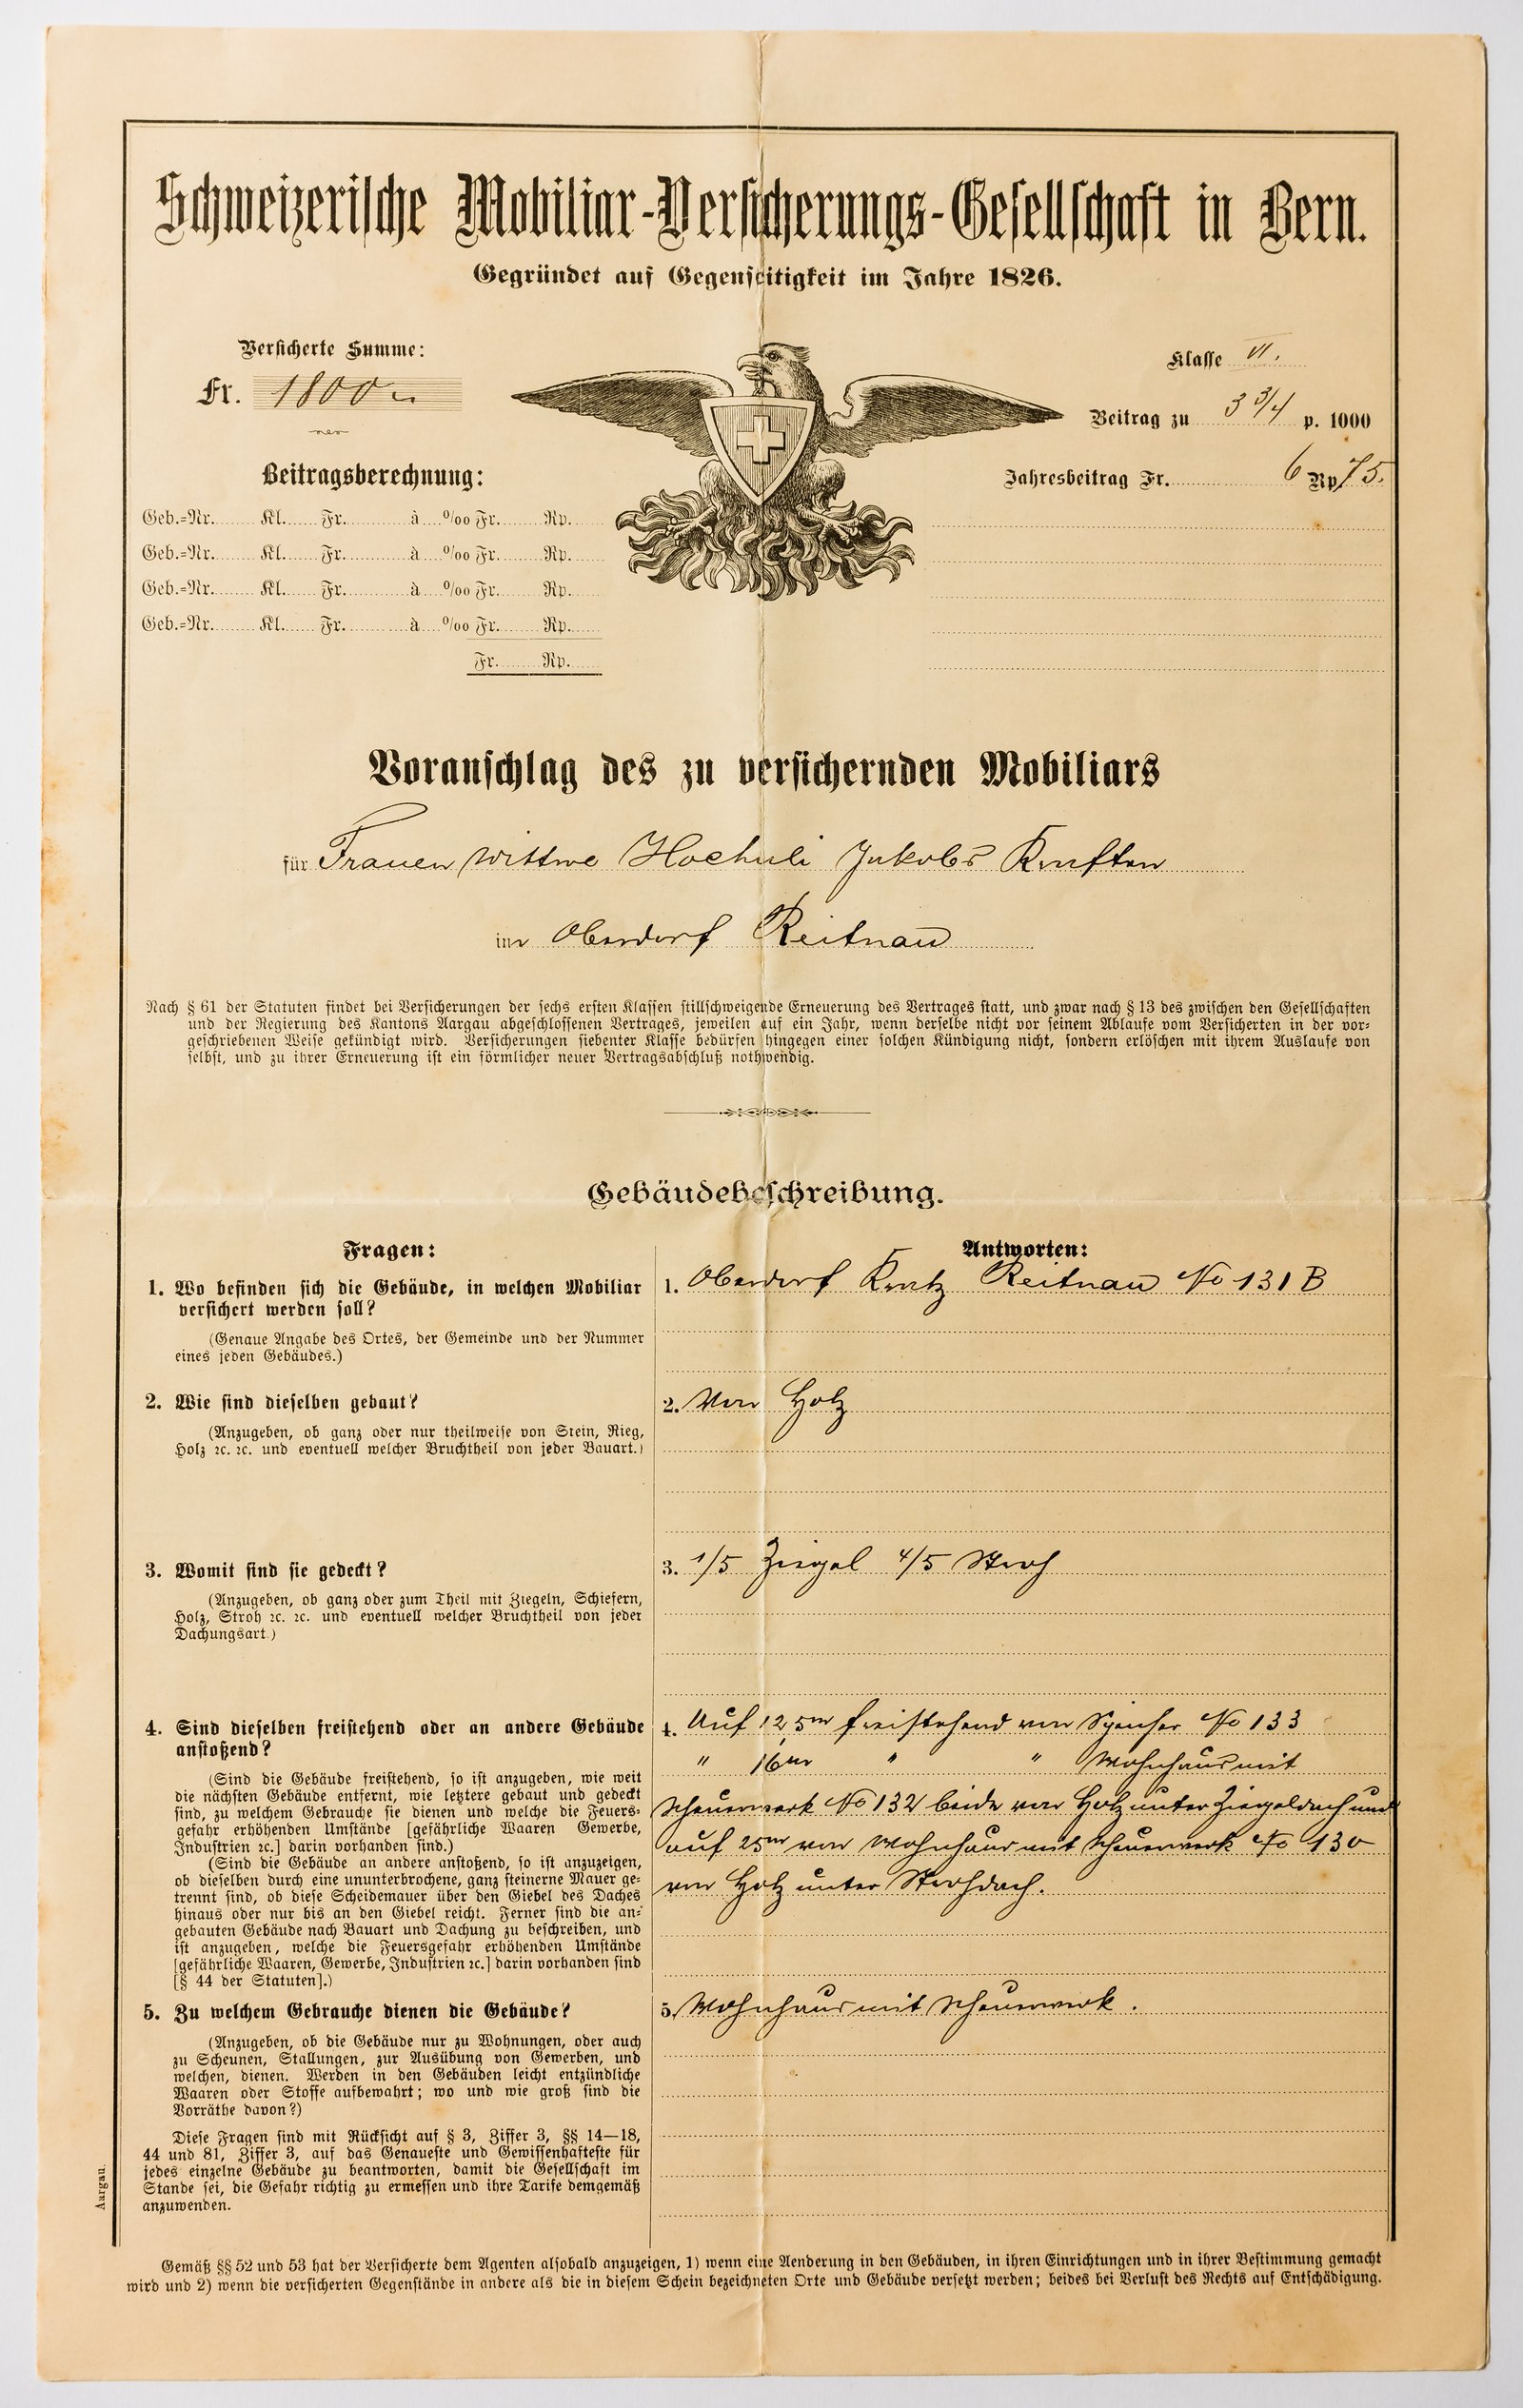 Schweizerische Mobiliar-Versicherungs-Gesellschaft in Bern.
Gegründet auf Gegenseitigkeit im Jahre 1826.
Versicherte Summe:
Fr. 1800
Beitragsberechnung:
Geb.=Nr. Kl. Fr. à %00 Fr. Rp.
Geb.=Nr. Kl. Fr. à %00 Fr. Rp.
Geb.=Nr. Kl. Fr. à %00 Fr. Rp.
Geb.=Nr. Kl. Fr. à %00 Fr. Rp.
Fr. Rp.
Klasse VI.
Beitrag zu 3 3/4 p. 1000
Jahresbeitrag Fr. 6 Rp 75.
Voranschlag des zu versichernden Mobiliars
für Frauen Wittwe Hochuli Jakobs
im Oberdorf Reitnau
Nach § 61 der Statuten findet bei Versicherungen der sechs ersten Klassen stillschweigende Erneuerung des Vertrages statt, und zwar nach § 13 des zwischen den Gesellschaften
und der Regierung des Kantons Aargau abgeschlossenen Vertrages, jeweilen auf ein Jahr, wenn derselbe nicht vor seinem Ablaufe vom Versicherten in der vor=
geschriebenen Weise gekündigt wird. Versicherungen siebenter Klasse bedürfen hingegen einer solchen Kündigung nicht, sondern erlöschen mit ihrem Auslaufe von
selbst, und zu ihrer Erneuerung ist ein förmlicher neuer Vertragsabschluß nothwendig.
Gebäudebeschreibung.
Fragen:
1. Wo befinden sich die Gebäude, in welchen Mobiliar
versichert werden soll?
(Genaue Angabe des Ortes, der Gemeinde und der Nummer
eines jeden Gebäudes.)
2. Wie sind dieselben gebaut?
(Anzugeben, ob ganz oder nur theilweise von Stein, Rieg,
Holz ꝛc. ꝛc. und eventuell welcher Bruchtheil von jeder Bauart.)
3. Womit sind sie gedeckt?
(Anzugeben, ob ganz oder zum Theil mit Ziegeln, Schiefern,
Holz, Stroh ꝛc. ꝛc. und eventuell welcher Bruchtheil von jeder
Dachungsart.)
4. Sind dieselben freistehend oder an andere Gebäude
anstoßend?
(Sind die Gebäude freistehend, so ist anzugeben, wie weit
die nächsten Gebäude entfernt, wie letztere gebaut und gedeckt
sind, zu welchem Gebrauche sie dienen und welche die Feuers=
gefahr erhöhenden Umstände [gefährliche Waaren Gewerbe,
Industrien ꝛc.] darin vorhanden sind.)
(Sind die Gebäude an andere anstoßend, so ist anzuzeigen,
ob dieselben durch eine ununterbrochene, ganz steinerne Mauer ge=
trennt sind, ob diese Scheidemauer über den Giebel des Daches
hinaus oder nur bis an den Giebel reicht. Ferner sind die an=
gebauten Gebäude nach Bauart und Dachung zu beschreiben, und
ist anzugeben, welche die Feuersgefahr erhöhenden Umstände
[gefährliche Waaren, Gewerbe, Industrien ꝛc.] darin vorhanden sind
[§ 44 der Statuten].)
5. Zu welchem Gebrauche dienen die Gebäude?
(Anzugeben, ob die Gebäude nur zu Wohnungen, oder auch
zu Scheunen, Stallungen, zur Ausübung von Gewerben, und
welchen, dienen. Werden in den Gebäuden leicht entzündliche
Waaren oder Stoffe aufbewahrt; wo und wie groß sind die
Vorräthe davon?)
Diese Fragen sind mit Rücksicht auf § 3, Ziffer 3, §§ 14—18,
44 und 81, Ziffer 3, auf das Genaueste und Gewissenhafteste für
jedes einzelne Gebäude zu beantworten, damit die Gesellschaft im
Stande sei, die Gefahr richtig zu ermessen und ihre Tarife demgemäß
anzuwenden.
Antworten:
1. Oberdorf Reitnau No 131 B
2. Von Holz
3. 1/5 Ziegel 4/5 Stroh
4. Auf 12,5m freistehend von Speicher No 133
" 16m " " Wohnhaus mit
Scheuerwerk No 132 beide von Holz unter Ziegeldach und
auf 25m von Wohnhaus mit Scheuerwerk No 130
von Holz unter Strohdach.
5. Wohnhaus mit Scheuerwerk.
Aargau.
Gemäß §§ 52 und 53 hat der Versicherte dem Agenten alsobald anzuzeigen, 1) wenn eine Aenderung in den Gebäuden, in ihren Einrichtungen und in ihrer Bestimmung gemacht
wird und 2) wenn die versicherten Gegenstände in andere als die in diesem Schein bezeichneten Orte und Gebäude versetzt werden; beides bei Verlust des Rechts auf Entschädigung.